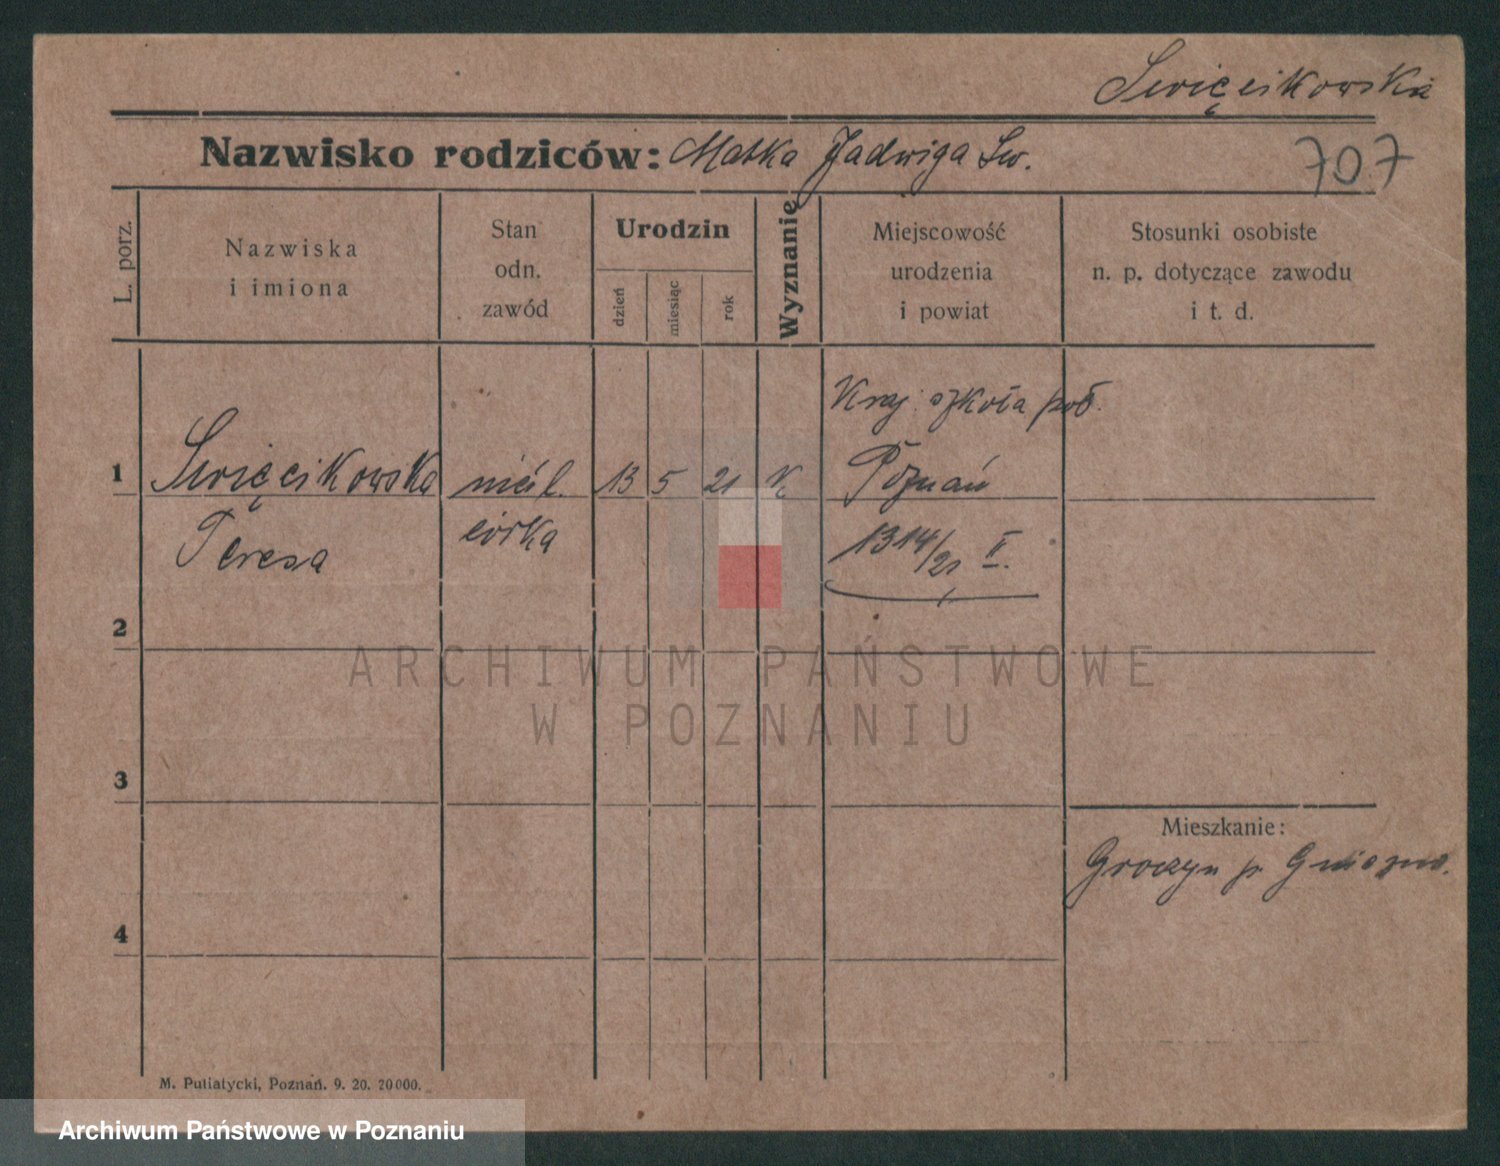 Święcikowska
Nazwisko rodziców: Matka Jadwiga Św.
707
L. porz.
Nazwiska
i imiona
Stan
odn.
zawód
Urodzin
dzień
miesiąc
rok
Wyznanie
Miejscowość
urodzenia
i powiat
Stosunki osobiste
n. p. dotyczące zawodu
i t. d.
Kraj. szkoła poł.
1 Święcikowska nieśl. 13 5 21 K Poznań
Teresa córka 1314/21 II.
2
ARCHIWUM PAŃSTWOWE
W POZNANIU
3
Mieszkanie:
Groczyn p. Gniezno.
4
M. Putiatycki, Poznań. 9. 20. 20000.
Archiwum Państwowe w Poznaniu